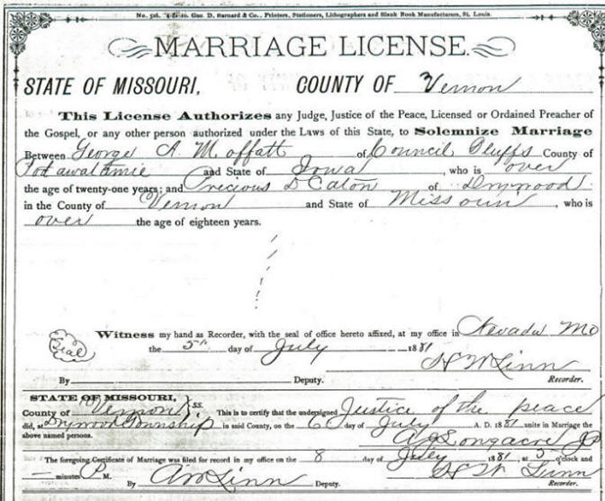 No. 516. Geo. D. Barnard & Co., Printers, Stationers, Lithographers and Blank Book Manufacturers, St. Louis.
MARRIAGE LICENSE.
STATE OF MISSOURI, COUNTY OF Vernon
This License Authorizes any Judge, Justice of the Peace, Licensed or Ordained Preacher of
the Gospel, or any other person authorized under the Laws of this State, to Solemnize Marriage
Between George A Moffatt of Council Bluffs County of
Potawatamie and State of Iowa, who is over
the age of twenty-one years; and Precious D Caton of Drywood
in the County of Vernon and State of Missouri, who is
over the age of eighteen years.
Witness my hand as Recorder, with the seal of office hereto affixed, at my office in Nevada Mo
Seal the 5th day of July 1881
H W Linn
By Deputy. Recorder.
STATE OF MISSOURI,
County of Vernon ss. This is to certify that the undersigned Justice of the peace
did, at Drywood Township in said County, on the 6 day of July A. D. 1881 unite in Marriage the
above named persons. A J Longacre JP
The foregoing Certificate of Marriage was filed for record in my office on the 8 day of July 1881, at 5 o'clock and
— minutes P. M. H W Linn
By Linn Deputy. Recorder.